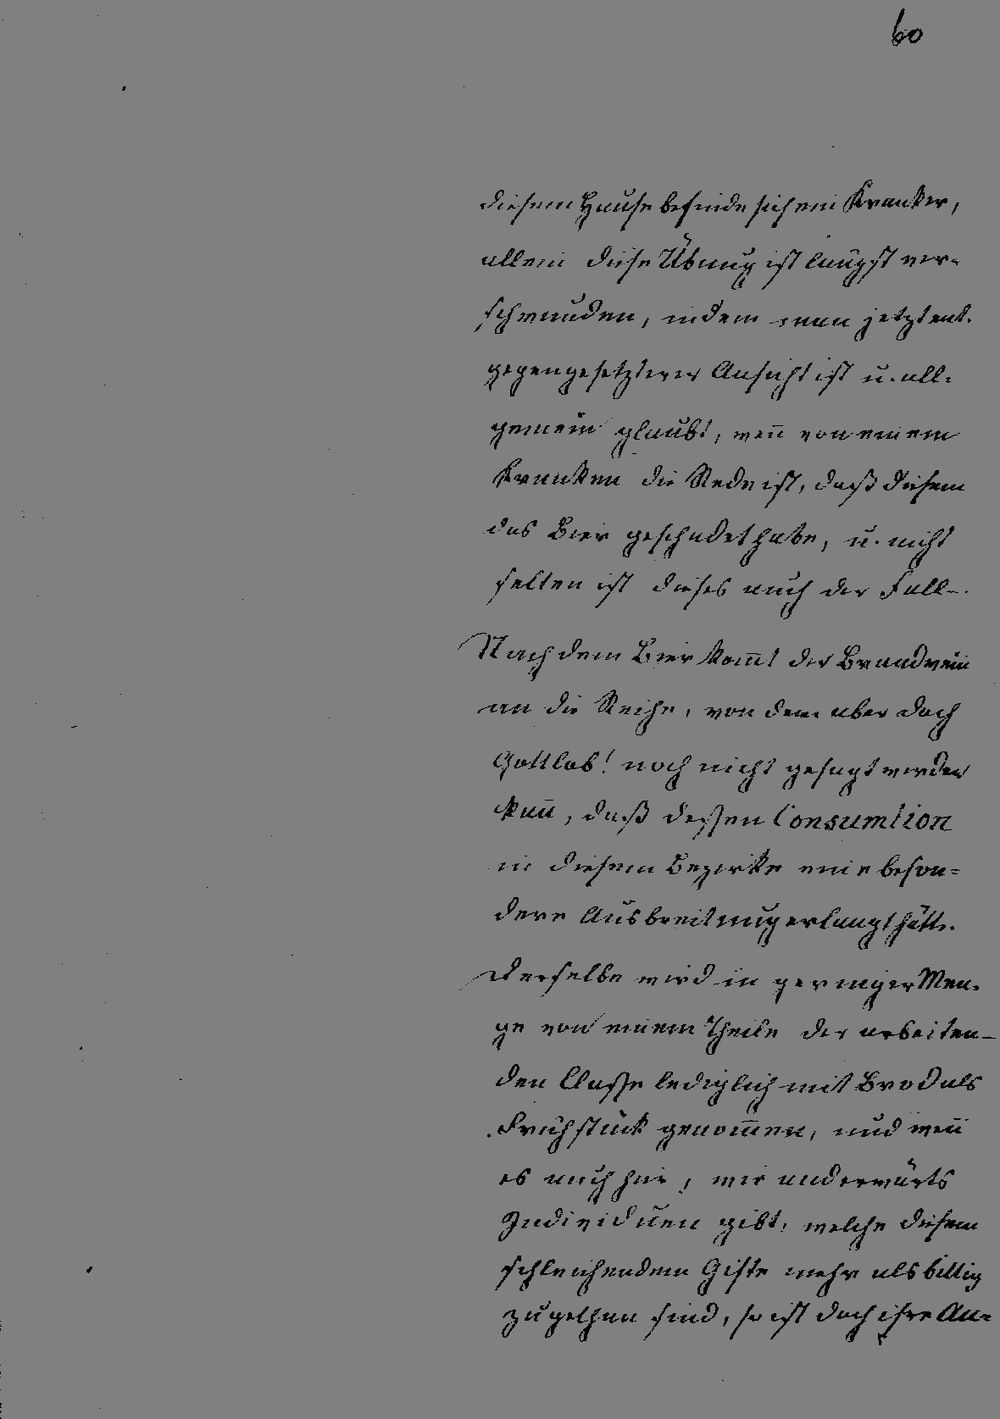 60
diesem Hause befinde sich ein Kranker,
allein diese Übung ist längst ver-
schwunden, indem man jetzt ent-
gegengesetzterer Ansicht ist u. all-
gemein glaubt, wen̄ von einem
Kranken die Rede ist, daß diesem
das Bier geschadet habe, u. nicht
selten ist dieses auch der Fall.
Nach dem Bier kom̄t der Brandwein
an die Reihe, von dem aber doch
Gottlob! noch nicht gesagt werden
kan̄, daß dessen Consumtion
in diesem Bezirke eine beson-
dere Ausbreitung erlangt hätte.
Derselbe wird in geringer Men-
ge von einem Theile der arbeiten-
den Classe lediglich mit Brod als
Frühstück genom̄en, und wen̄
es auch hie, wie anderwärts
Individuen gibt, welche diesem
schleichendem Gifte mehr als billig
zugethan sind, so ist doch ihre An-